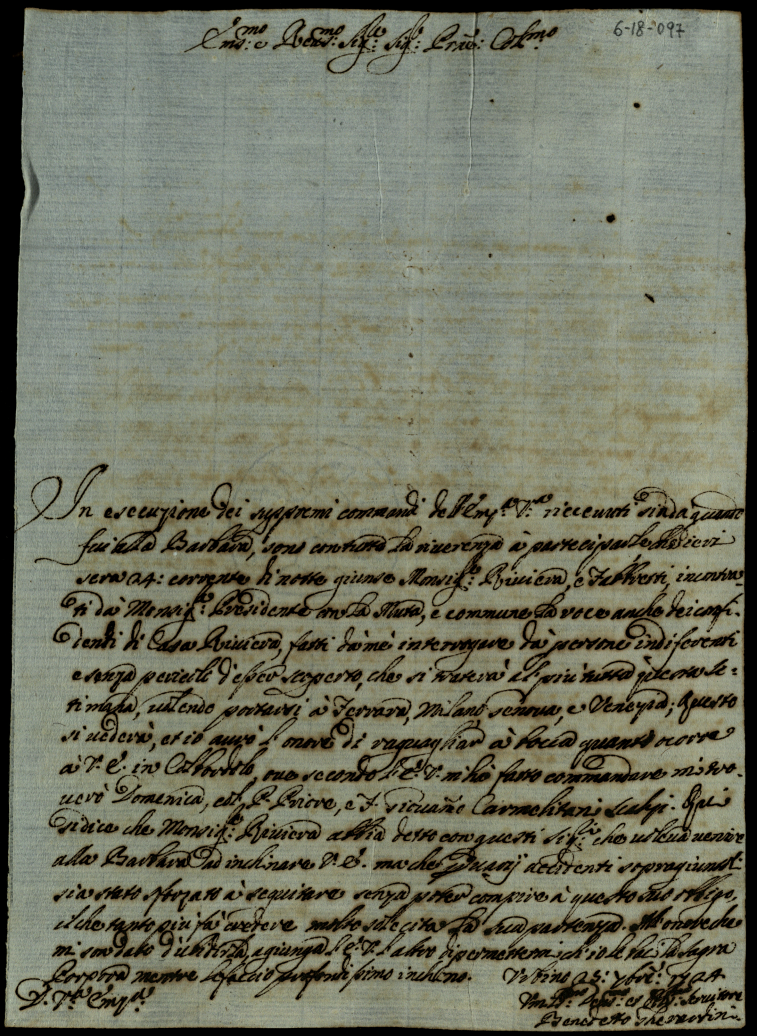 6-18-097
E.mo e Rev.mo Sig.re Sig.re Pron: Col.mo
In esecuzione dei suppremi commandi dell'Em.za V.ra riceuuti sin da quando
fui alla Barbara, sono con tutta la riuerenza à parteciparle che ieri
sera 24: corrente di notte giunse Monsig.re Riviera, e incontra-
ti dà Monsig.re Presidente con la Muta, e commune la voce anche dei confi-
denti di Casa Riviera, fatti dà mè interrogare dà persone indiferenti
e senza pericolo d'esser scoperto, che si tratterà al più tutta questa se-
timana, uolendo portarsi à Ferrara, Milano, Genoua, e Venezia; Questo
si uederà, et io aurò l'onore di raguagliar à bocca quanto ocorre
à V. E. in ove secondo l'E. V. m'hà fatto commandare mi tro-
uerò Domenica, col P. Priore, e Carmelitani Scalzi. Qui
si dice che Monsig.re Riviera abbia detto con questi Sig.ri che uoleua uenire
alla Barbara ad inchinare V. E. ma che p uarij accidenti sopragiunti
sia stato sforzato à seguitare senza poter compire à questo suo obligo,
il che tanto più fà credere molto solecita la sua partenza. All'onore che
mi son dato d'ubidirla, agiunga l'E. V. l'altro di permettermi ch'io le baci la Sagra
Porpora mentre le faccio profondissimo inchino.
D. V.ra Em.za
Urbino 25: 7bre: 1724
Um.mo Deu.mo et Obl.mo Seruitore
Benedetto Gherardini